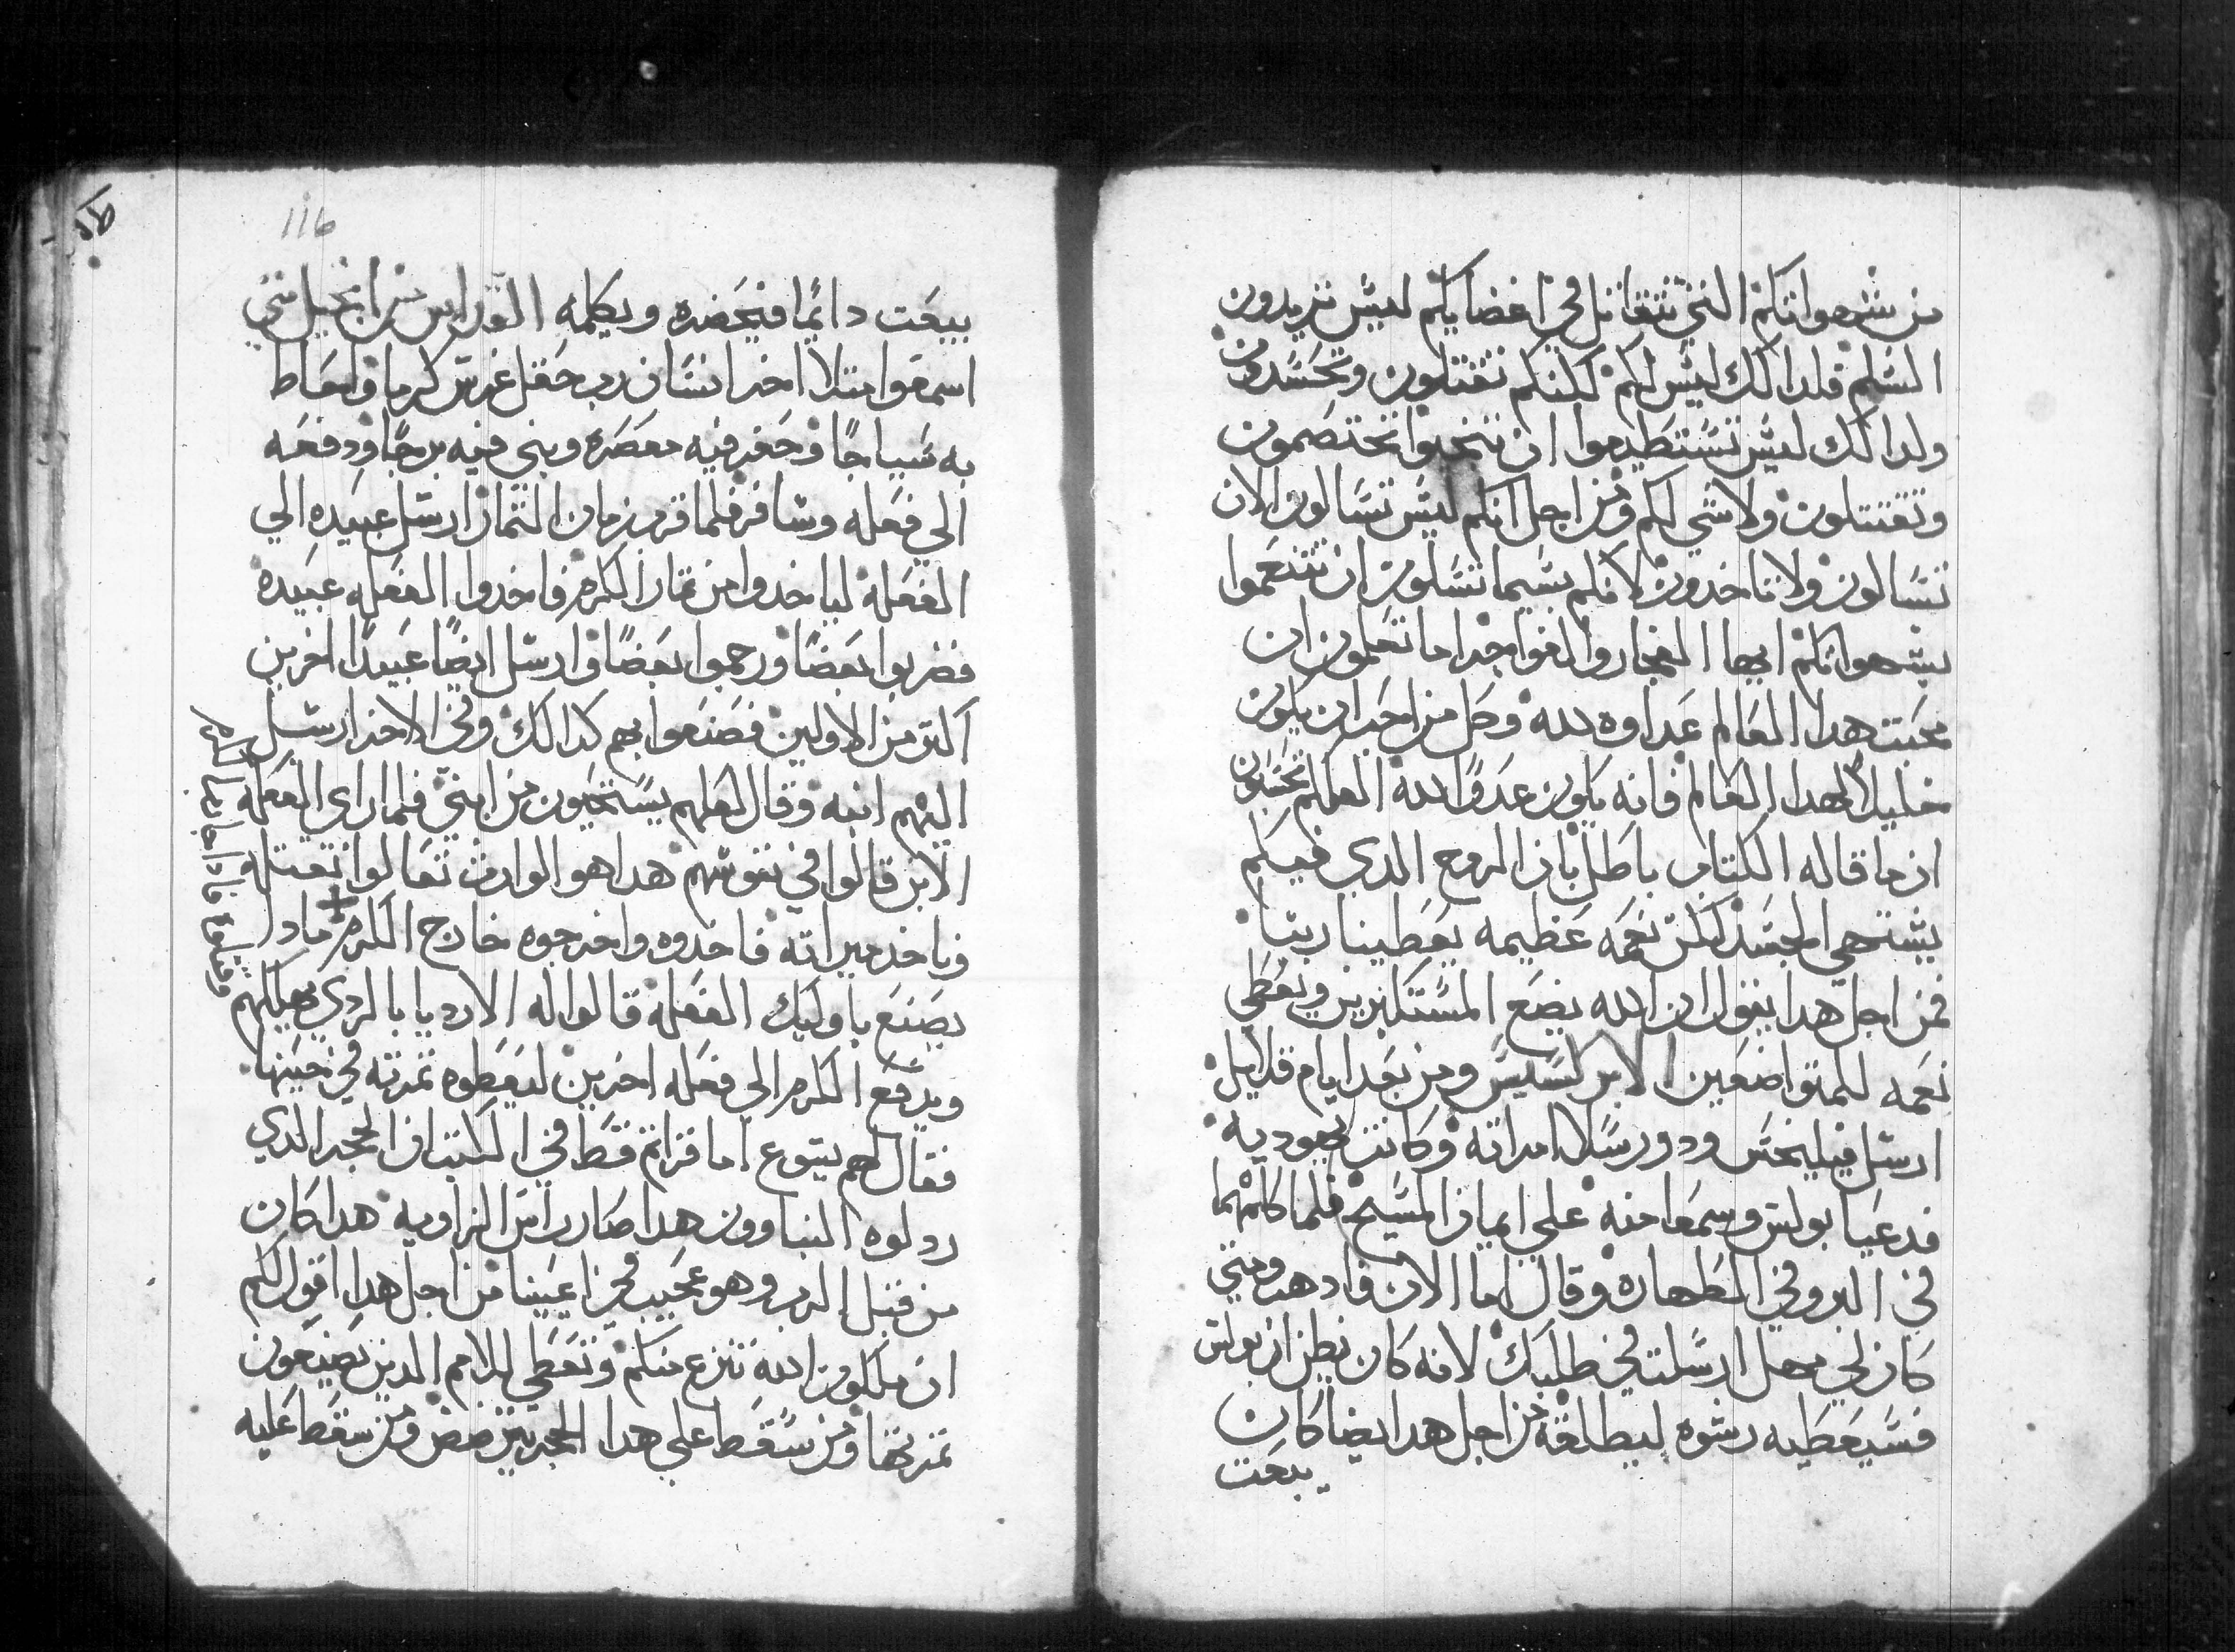 من شهواتكم التي تتقاتل في اعضايكم ليس تريدون
السلم فلدالك ليس لكم لكنكم تقتلون وتحسدون
ولدالك ليس تستطيعوا ان تنجوا تختصمون
وتقتتلون ولا شي لكم ومن اجل انكم ليس تسالون الان
تسالون ولا تاخدون لانكم بيسما تسلون ان تتنعموا
بشهواتكم ايها الفجار والفواجر اما تعلمون ان
محبت هدا العالم عداوه لله وكل من احب ان يكون
خليلا لهدا العالم فانه يكون عدوا لله العلكم تحسبون
ان ما قاله الكتاب باطل بان الروح الدي فيكم
يشتهي الجسد لكن نعمه عظيمه يعطينا ربنا
فمن اجل هدا يقول ان الله يضع المستكبرين ويعطي
نعمه للمتواضعين الابركسيس ومن بعد ايام قلايل
ارسل فيليخس ودورسلا امراته وكانت يهوديه
فدعيا بولس وسمعا منه علي ايمان المسيح فلما كلمهما
في البر وفي الطهاره وقال اما الان فادهب ومتي
كان لي مهل ارسلت في طلبك لانه كان يظن ان بولس
فسيعطيه رشوه ليطلقه من اجل هدا ايضا كان
يبعت
116
يبعت دايما فيحضره ويكلمه القداس من انجيل متي
اسمعوا متلا اخر انسان رب حقل غرس كرما واحاط
به سياجا وحفر فيه معصره وبني فيه برجا ودفعه
الي فعله وسافر فلما قرب زمان التمار ارسل عبيده الي
الفعله لياخدوا من تمار الكرم فاخدوا الفعله عبيده
فضربوا بعضا ورجموا بعضا وارسل ايضا عبيدا اخرين
اكتر من الاولين فصنعوا بهم كدالك وفي الاخر ارسل
اليهم ابنه وقال لعلهم يستحيون من ابني فلما راي الفعله
الابن قالوا في نفوسهم هدا هو الوارت تعالوا نقتله
وناخد ميراته فاخدوه واخرجوه خارج الكرم مادا
يصنع باوليك الفعله قالوا له الارديا بالردي يهلكهم
ويدفع الكرم الي فعله اخرين ليعطوه تمرته في حينها
فقال لهم يسوع اما قراتم قط في الكتب ان الحجر الدي
ردلوه البناوون هدا صار راس الزاويه هدا كان
من قبل الرب وهو عجيب في اعيينا من اجل هدا اقول لكم
ان ملكوت الله تنزع منكم وتعطي للامم الدين يصنعون
تمرتها ومن سقط علي هدا الحجر يترضض ومن سقط عليه